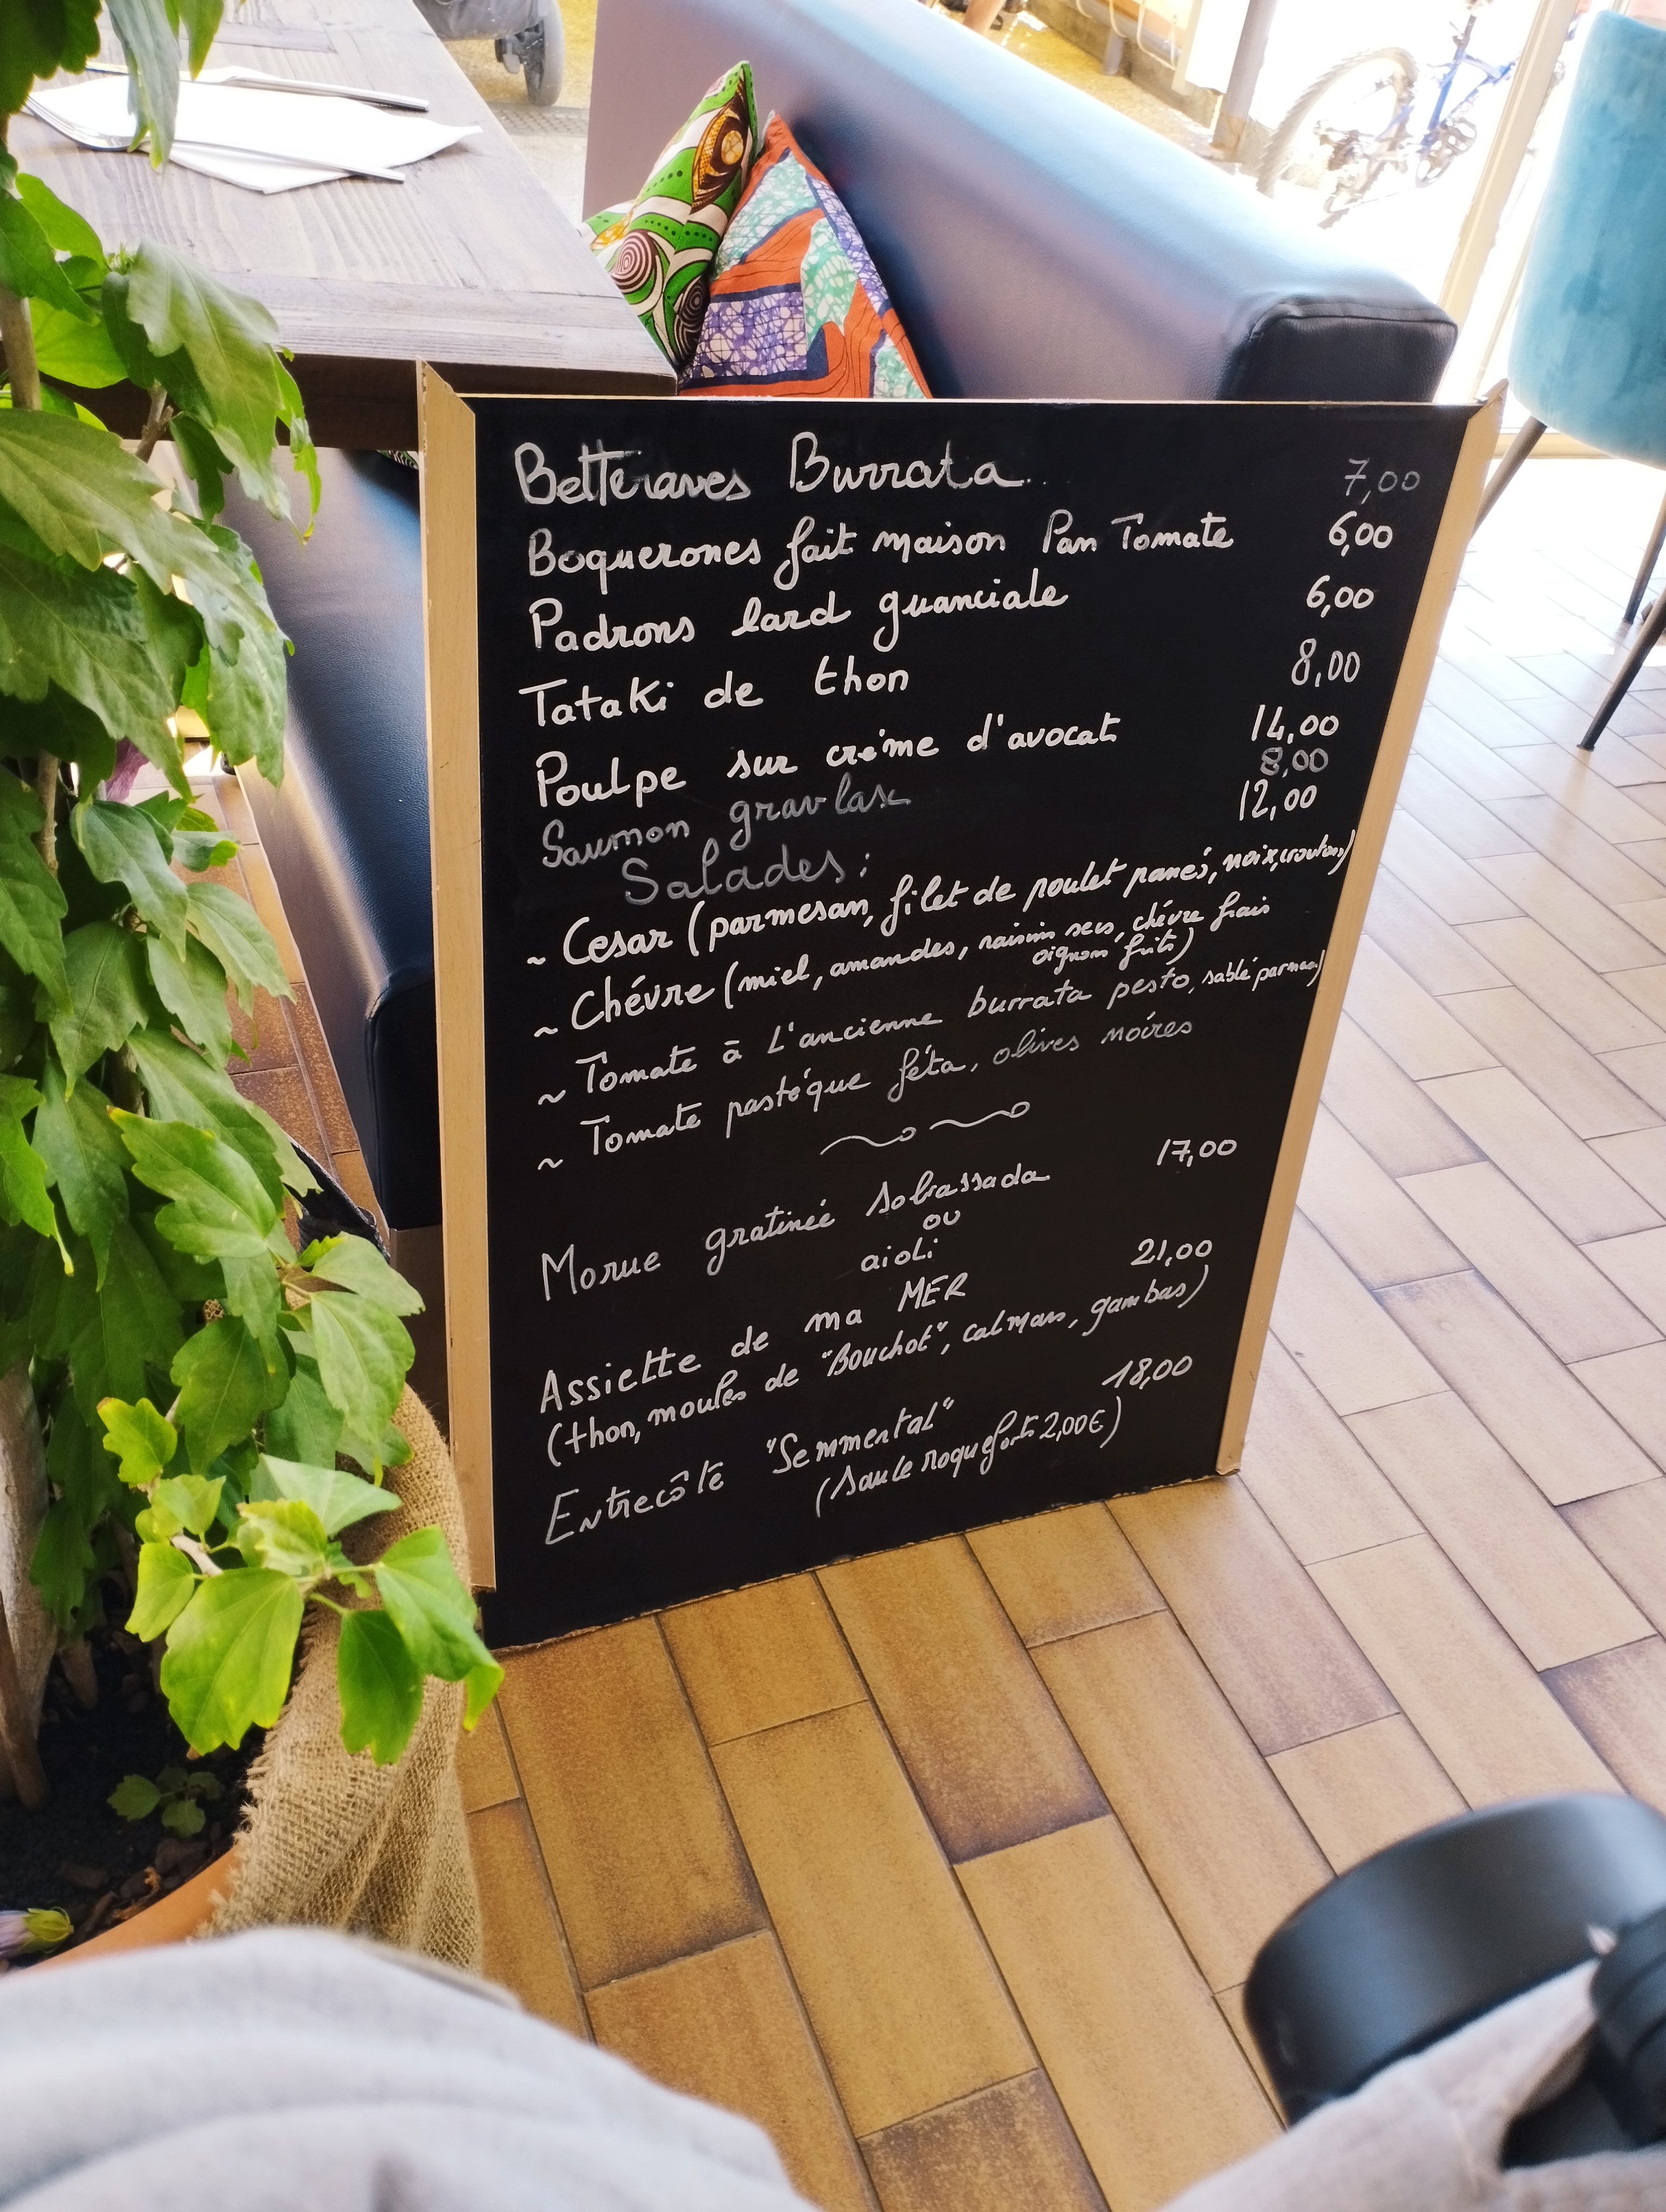 Betteraves Burrata.. 7,00
Boquerones fait maison Pan Tomate 6,00
Padrons lard guanciale 6,00
Tataki de thon 8,00
Poulpe sur créme d'avocat 14,00
Saumon gravlax 8,00
Salades: 12,00
~ Cesar (parmesan, filet de poulet panés, noix, croutons)
~ Chévre (miel, amandes, raisins secs, chévre frais
oignons frits)
~ Tomate à L'ancienne burrata pesto, sablé parmesan)
~ Tomate pastéque féta, olives noires
Morue gratinée sobrassada 17,00
ou
aioli
Assiette de ma MER 21,00
(thon, moules de "Bouchot", calmars, gambas)
Entrecôte "Semmental" 18,00
(sauce roquefort 2,00€)